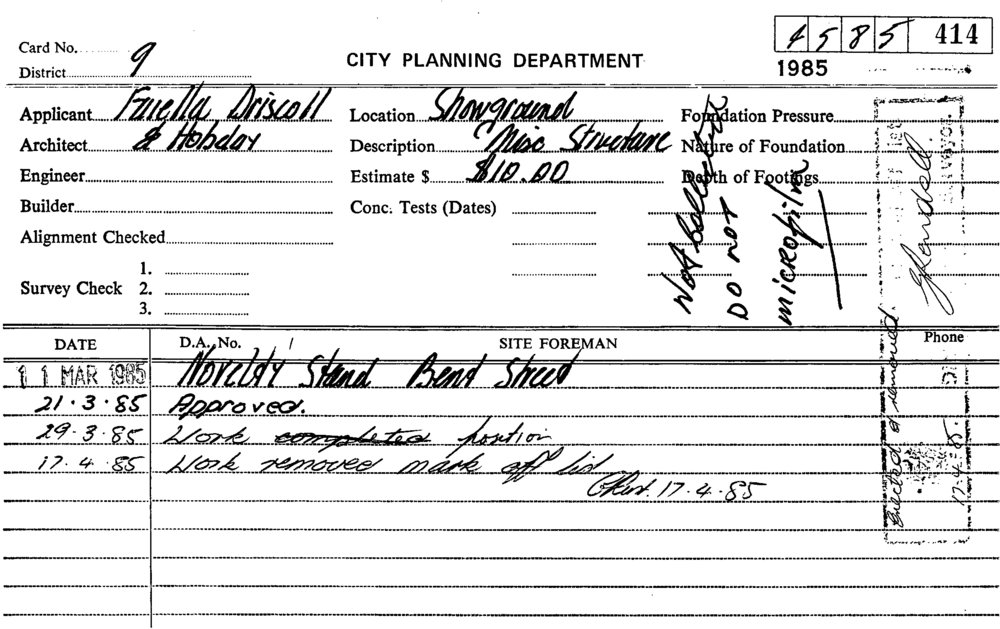 Card No. 9
4 5 8 5 414
CITY PLANNING DEPARTMENT
District
1985
Applicant Driscoll
Location Showground
Foundation Pressure
Architect & Hobday
Description Misc Structure
Nature of Foundation
Engineer
Estimate $ $10.00
Depth of Footings
Builder
Conc. Tests (Dates)
Alignment Checked
Survey Check
1.
2.
3.
Not Collected
DO NOT
microfilm
DATE
D.A. No.
SITE FOREMAN
Phone
11 MAR 1985 Novelty Stand Bent Street
21.3.85 Approved.
29.3.85 Work completed position
17.4.85 Work removed mark off list
17.4.85
Erected & removed
17.4.85.